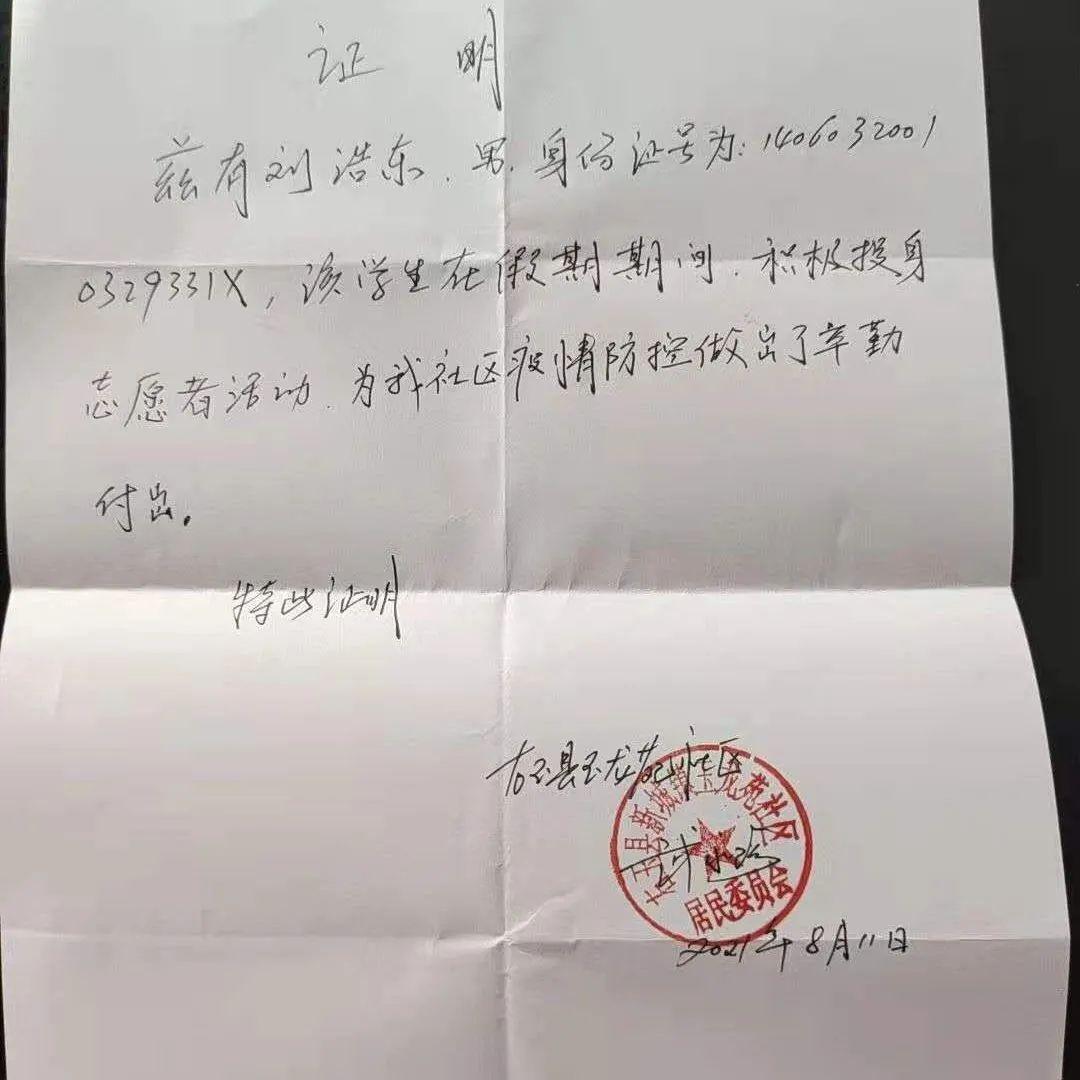 证 明
兹有刘浩东．男．身份证号为：1406032001
0329331X，该学生在假期期间．积极投身
志愿者活动．为我社区疫情防控做出了辛勤
付出。
特此证明
右玉县玉龙苑社区
右玉县新城镇玉龙苑社区
居民委员会
2021年8月11日